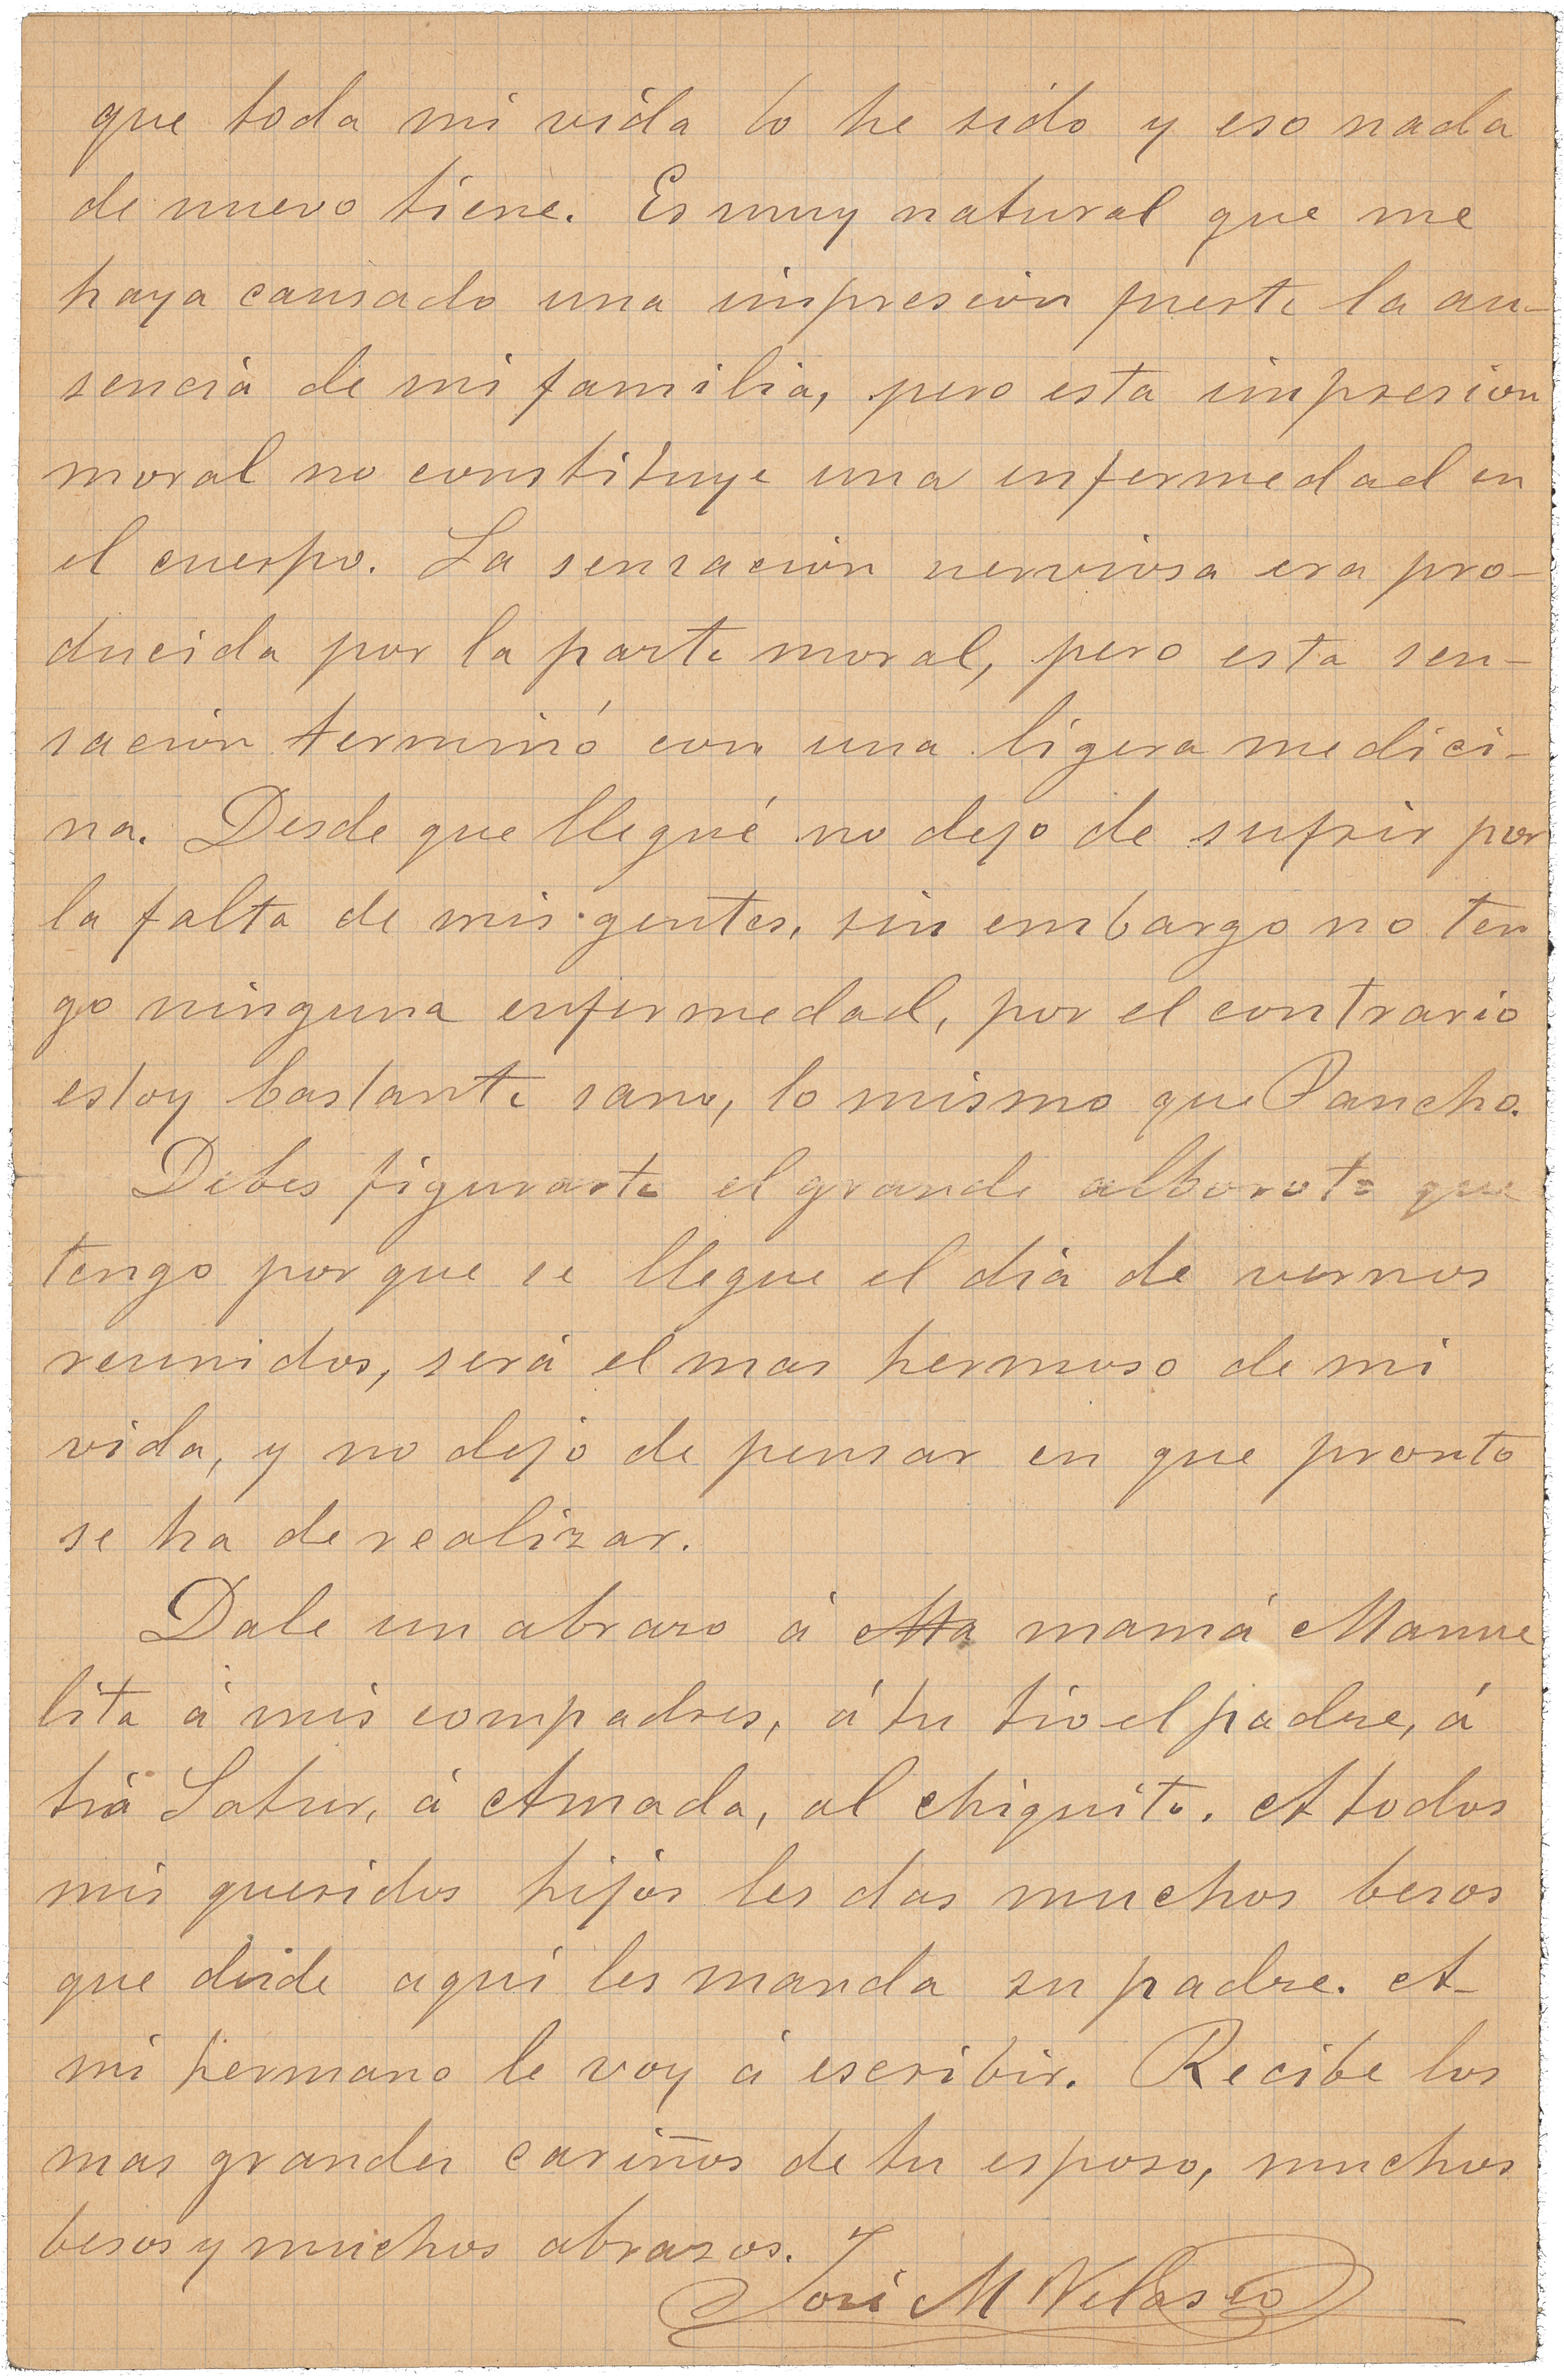 que toda mi vida lo he sido y eso nada
de nuevo tiene. Es muy natural que me
haya causado una impresion fuerte la au-
sencia de mi familia, pero esta impresion
moral no constituye una enfermedad en
el cuerpo. La sensacion nerviosa era pro-
ducida por la parte moral, pero esta sen-
sacion terminó con una ligera medici-
na. Desde que llegué no dejo de sufrir por
la falta de mis gentes, sin embargo no ten
go ninguna enfermedad, por el contrario
estoy bastante sano, lo mismo que Pancho.
Debes figurarte el grande alboroto que
tengo porque se llegue el dia de vernos
reunidos, será el mas hermoso de mi
vida, y no dejo de pensar en que pronto
se ha de realizar.
Dale un abrazo á Ma mamá Manue
lita á mis compadres, á tu tio el padre, á
tia Satur, á Amada, al chiquito. A todos
mis queridos hijos les das muchos besos
que desde aqui les manda su padre. A
mi hermano le voy á escribir. Recibe los
mas grandes cariños de tu esposo, muchos
besos y muchos abrazos.
José M Velasco